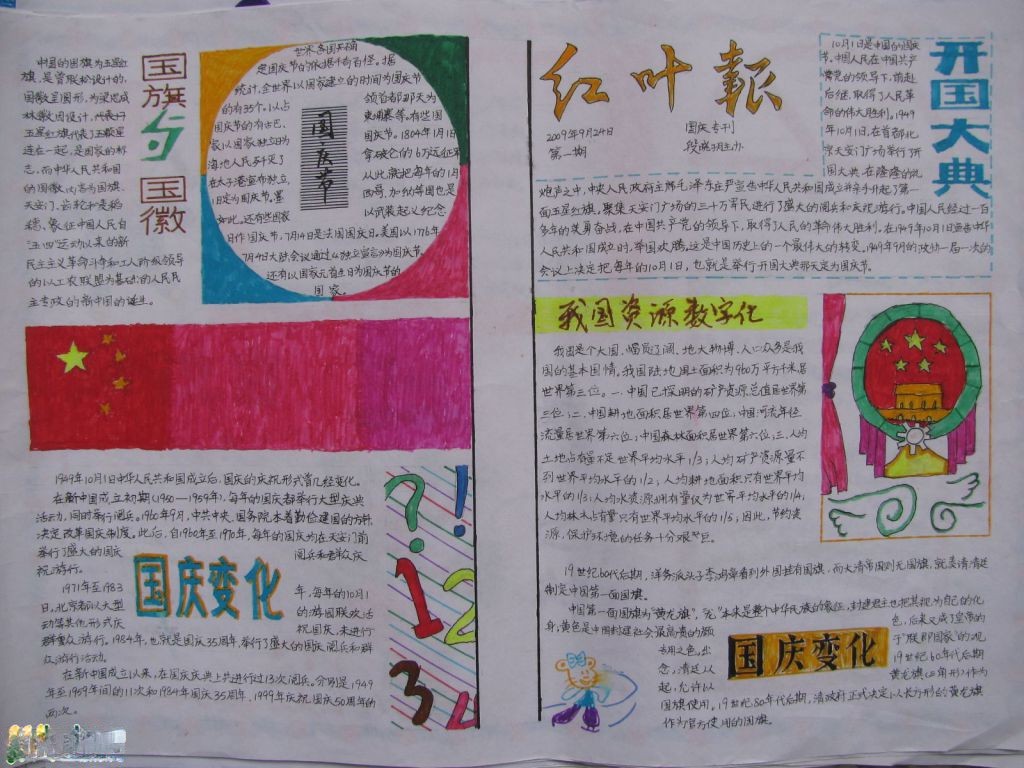 国旗与国徽
中国的国旗为五星红
旗,是曾联松设计的,
国徽呈圆形,为梁思成
林徽因设计,代表了
五星红旗代表了五颗星
连在一起,是国家的标
志,而中华人民共和国
的国徽,内容为国旗、
天安门、齿轮和麦稻
穗,象征中国人民自
"五四"运动以来的新
民主主义革命斗争和工人阶级领导
的以工农联盟为基础的人民民
主专政的新中国的诞生。
国庆节
世界各国天确
定国庆节的依据千奇百怪。据
统计,全世界以国家建立的时间为国庆节
的有35个,以占领首都那天为
国庆节的有古巴、柬埔寨等,有些国
家以国家独立日为国庆节。1804年1月1日
海地人民歼灭了拿破仑的6万远征军
在太子港宣布独立,从此就把每年的1月
1日定为国庆节。墨西哥、加纳等国也是
如此。还有些国家以武装起义纪念
日作国庆节,7月14日是法国国庆日。美国以1776年
7月4大陆会议通过《独立宣言》为国庆节。
还有以国家元首生日为国庆节的
国家。
1949年10月1日中华人民共和国成立后,国庆的庆祝形式曾几经变化。
在新中国成立初期(1950——1959年),每年的国庆都举行大型庆典
活动,同时举行阅兵。1960年9月,中共中央、国务院本着勤俭建国的方针,
决定改革国庆制度。此后,自1960年至1970年,每年的国庆均在天安门前
举行了盛大的国庆阅兵和群众庆
祝游行。
国庆变化
1971年至1983年,每年的10月1
日,北京都以大型的游园联欢活
动等其他形式庆祝国庆,未进行
群众游行。1984年,也就是国庆35周年,举行了盛大的国庆阅兵和群
众游行活动。
在新中国成立以来,在国庆庆典上共进行过13次阅兵。分别是1949
年至1959年间的11次和1984年国庆35周年、1999年庆祝国庆50周年的
两次。
?!
1 2
3 4
红叶报
2009年9月24日
第一期
国庆专刊
开国大典
10月1日是中国的国庆
节。中国人民在中国共产
党的领导下,前赴
后继,取得了人民革
命的伟大胜利。1949
年10月1日,在首都北
京天安门广场举行了开
国大典,在隆隆的礼
炮声之中,中央人民政府主席毛泽东庄严宣告中华人民共和国成立并亲手升起了第一
面五星红旗。聚集天安门广场的三十万军民进行了盛大的阅兵和庆祝游行。中国人民经过一百
多年的英勇奋战,在中国共产党的领导下,取得了人民的革命伟大胜利。在1949年10月1日宣告中华
人民共和国成立时,举国欢腾。这是中国历史上的一个最伟大的转变。1949年9月的政协一届一次的
会议上决定把每年的10月1日,也就是举行开国大典那天定为国庆节。
我国资源数字化
我国是个大国,幅员辽阔、地大物博、人口众多是我
国的基本国情。我国陆地国土面积为960万平方千米居
世界第三位。一、中国已探明的矿产资源总值居世界第
三位;二、中国耕地面积居世界第四位;中国河流年径
流量居世界第六位;中国森林面积居世界第六位;三、人均
土地占有量不足世界平均水平1/3;人均矿产资源量不
到世界平均水平的1/2,人均耕地面积只有世界平均
水平的1/3;人均水资源拥有量仅为世界平均水平的1/4,
人均林木占有量只有世界平均水平的1/5;因此,节约资
源,保护环境的任务十分艰巨。
19世纪60年代后期,洋务派头子李鸿章看到外国挂有国旗,而大清帝国则无国旗,就奏请清廷
制定中国第一面国旗。
中国第一面国旗为"黄龙旗","龙"本来是整个中华民族的象征,封建君主也把其视为自己的化
身;黄色是中国封建社会最高贵的颜色,后来又成了皇帝的
国庆变化
专用之色,出于"朕即国家"的观
念,清廷从19世纪60年代后期
起,允许以黄龙旗(三角形)作为
国旗使用。19世纪80年代后期,清政府正式决定以长方形的黄龙旗
作为官方使用的国旗。